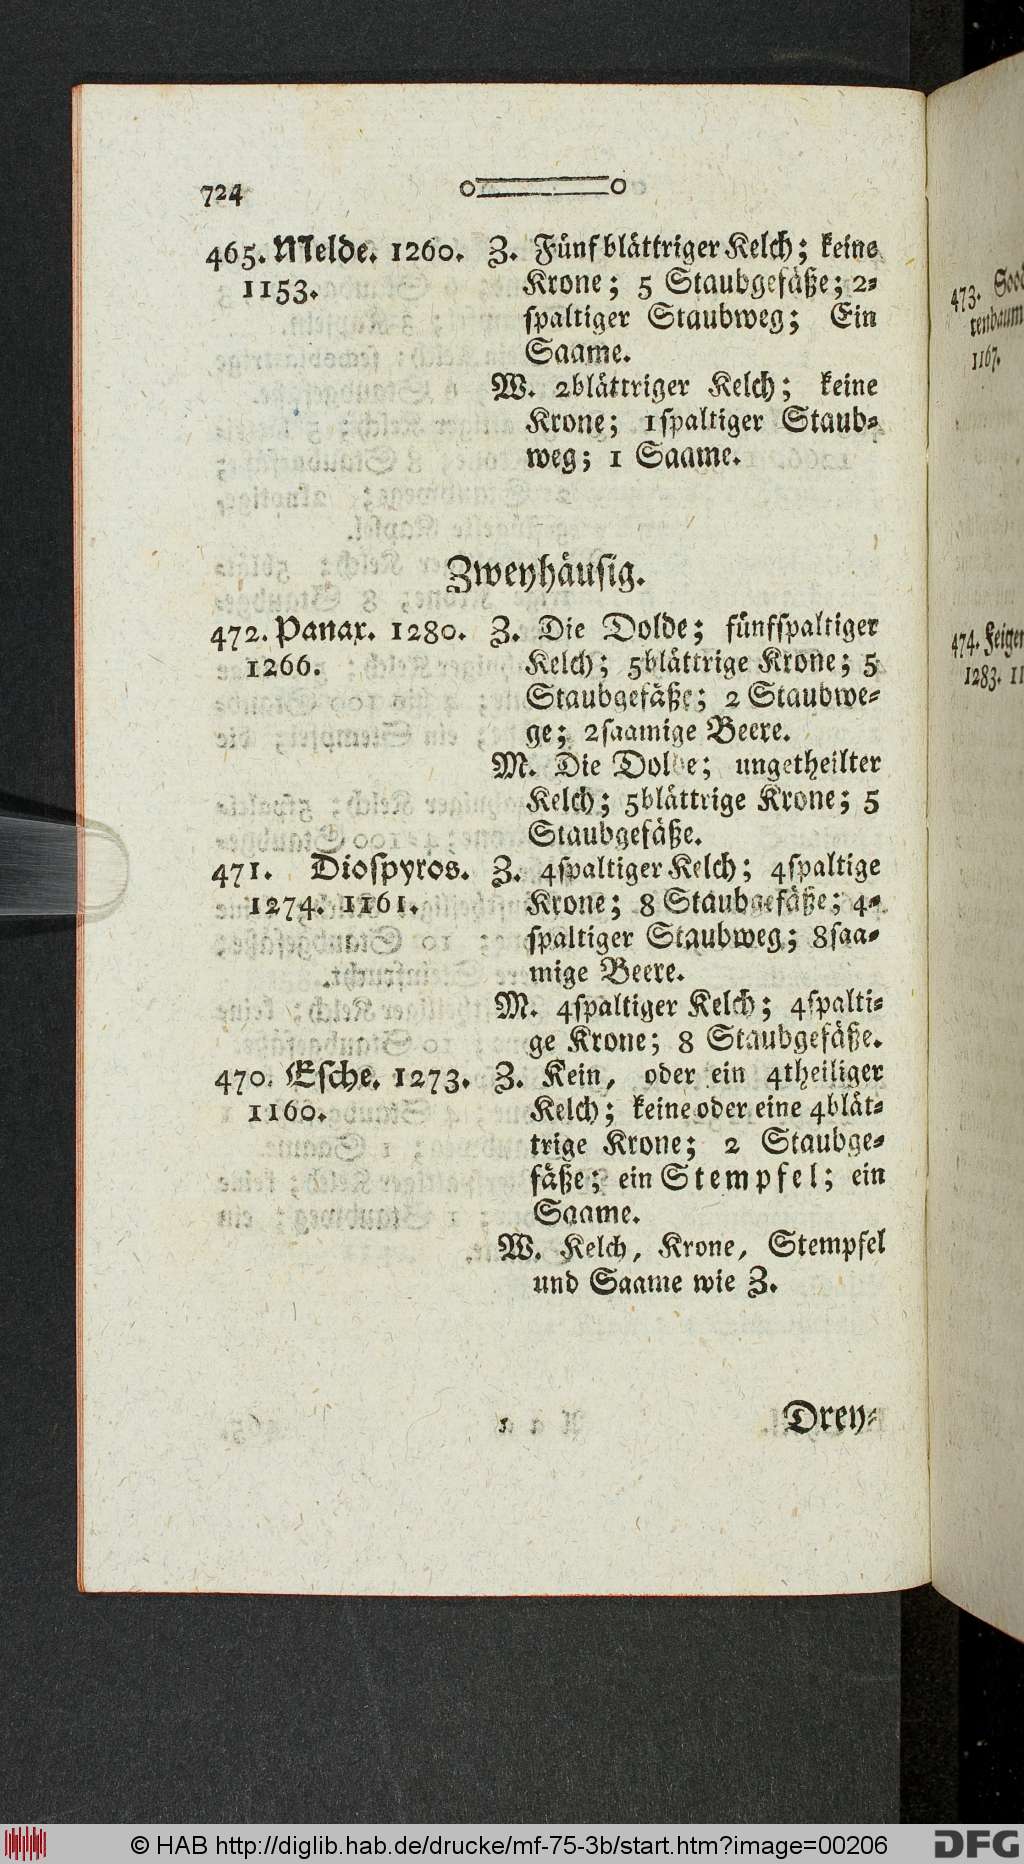 724
465. Melde. 1260. 1153.
Z. Fünfblättriger Kelch; keine
Krone; 5 Staubgefäße; 2-
spaltiger Staubweg; Ein
Saame.
W. 2blättriger Kelch; keine
Krone; 1spaltiger Staub-
weg; 1 Saame.
Zweyhäusig.
472. Panax. 1280. 1266.
Z. Die Dolde; fünfspaltiger
Kelch; 5blättrige Krone; 5
Staubgefäße; 2 Staubwe-
ge; 2saamige Beere.
M. Die Dolde; ungetheilter
Kelch; 5blättrige Krone; 5
Staubgefäße.
471. Diospyros. 1274. 1161.
Z. 4spaltiger Kelch; 4spaltige
Krone; 8 Staubgefäße; 4-
spaltiger Staubweg; 8saa-
mige Beere.
M. 4spaltiger Kelch; 4spalti-
ge Krone; 8 Staubgefäße.
470. Esche. 1273. 1160.
Z. Kein, oder ein 4theiliger
Kelch; keine oder eine 4blät-
trige Krone; 2 Staubge-
fäße; ein Stempfel; ein
Saame.
W. Kelch, Krone, Stempfel
und Saame wie Z.
Drey-
473.
tenbaum
1167.
474. Feigen
1283. 11
© HAB http://diglib.hab.de/drucke/mf-75-3b/start.htm?image=00206
DFG